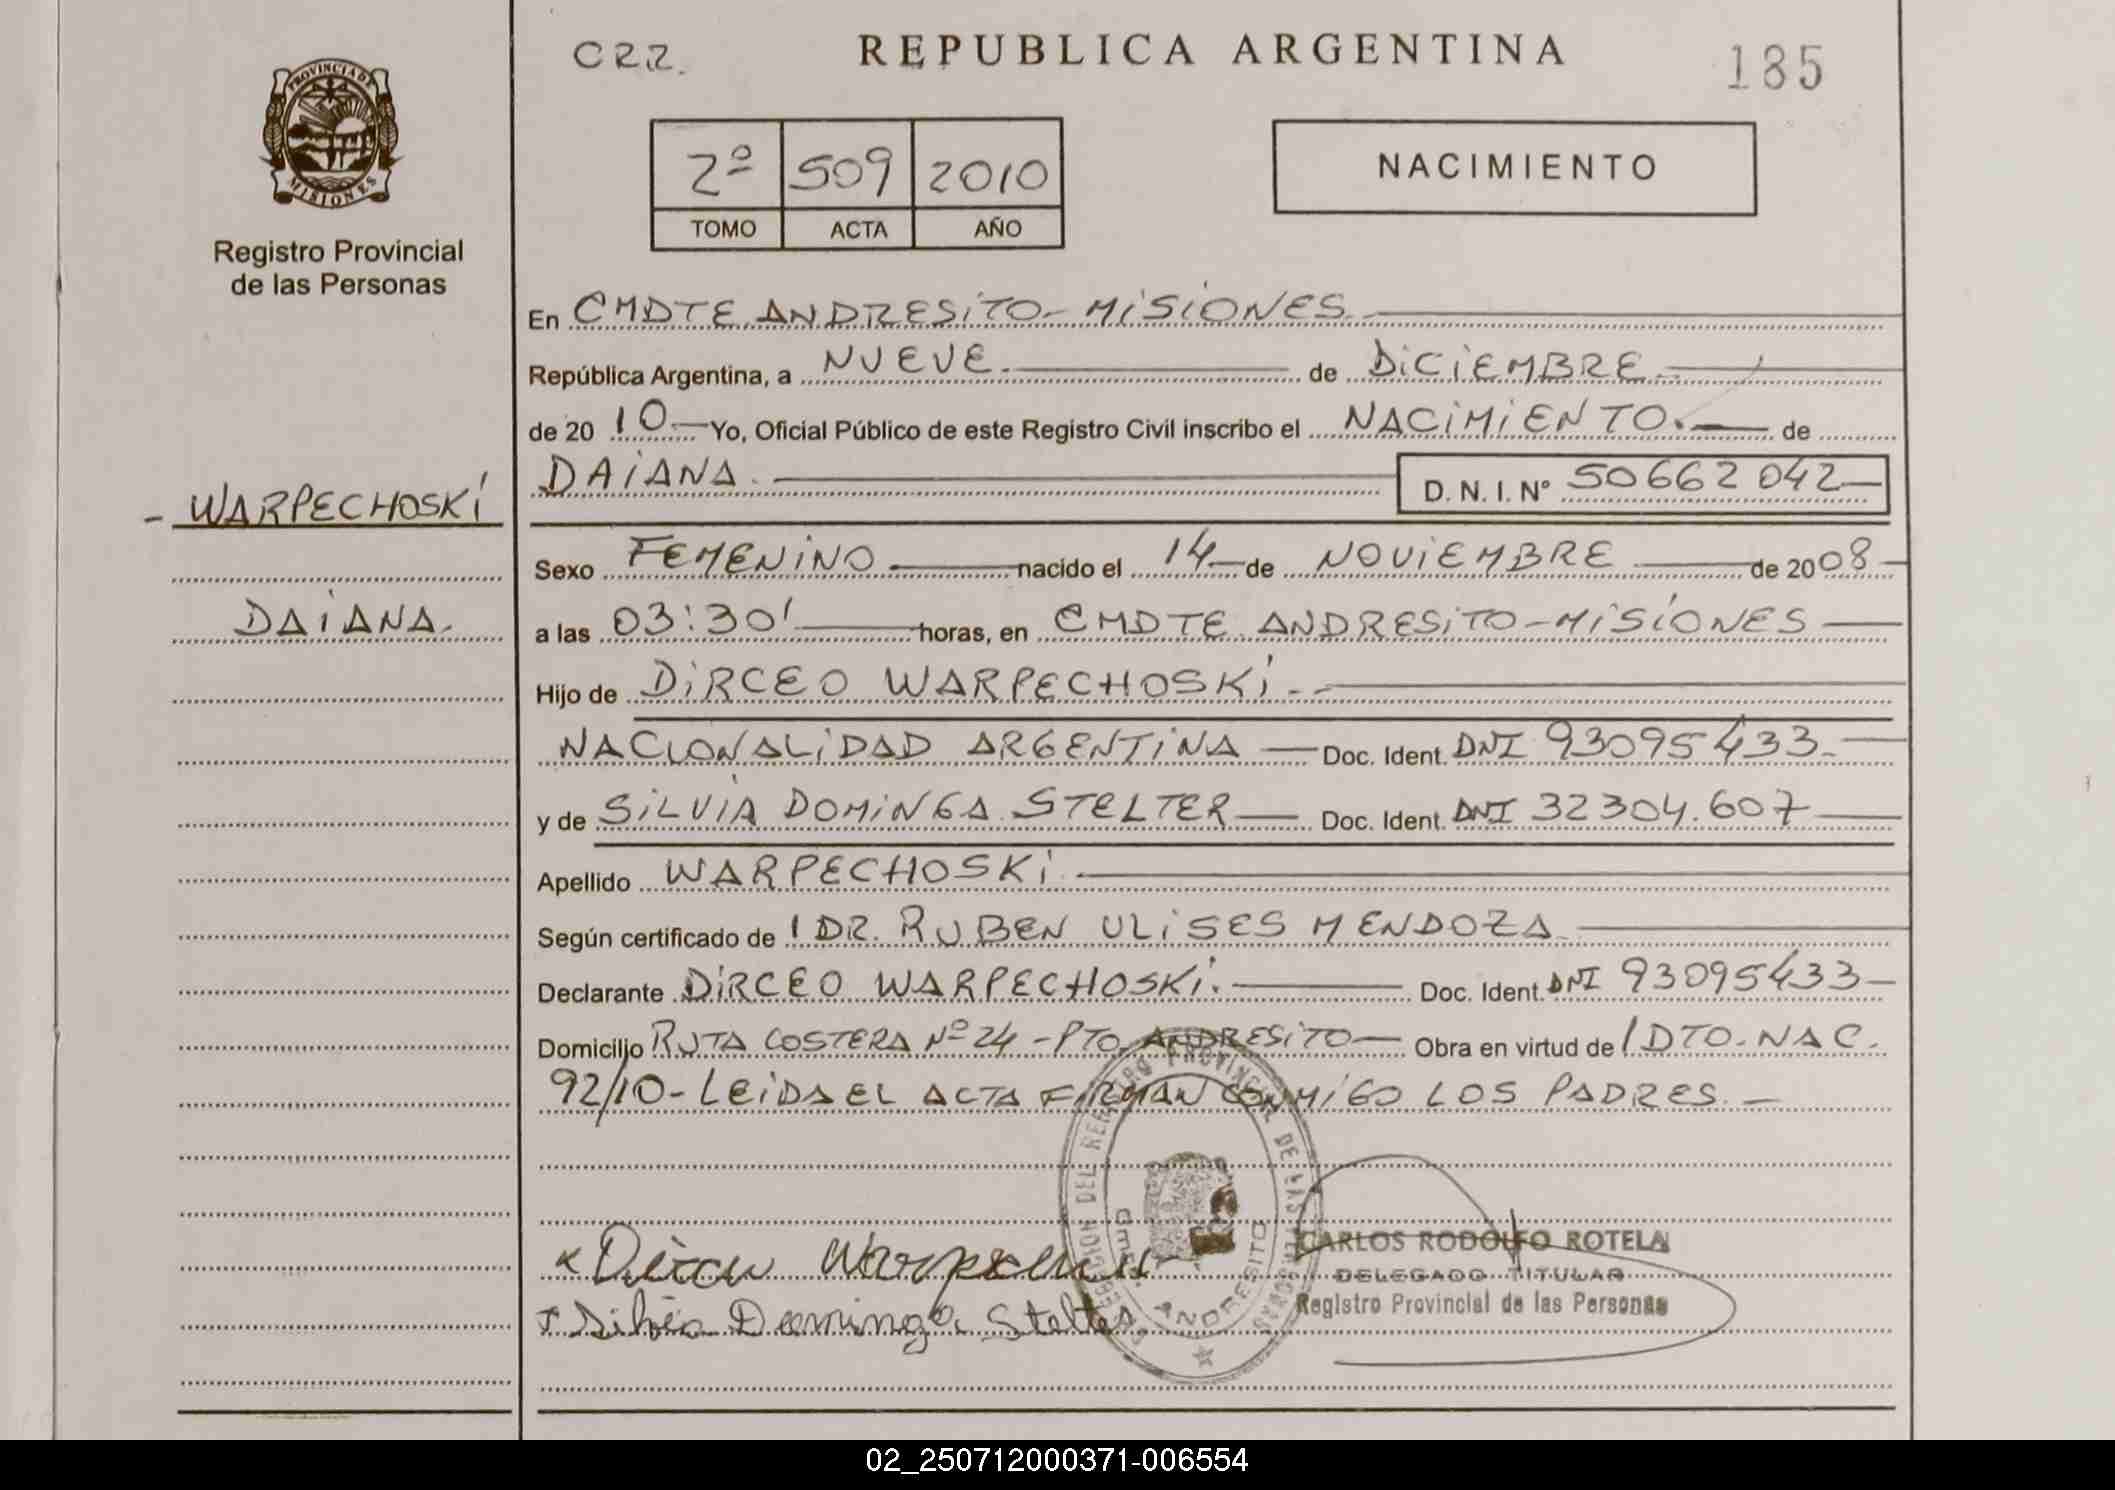 CRR.
REPUBLICA ARGENTINA
185
PROVINCIA DE
MISIONES
Registro Provincial
de las Personas
2º 509 2010
TOMO ACTA AÑO
NACIMIENTO
En CMDTE ANDRESITO - MISIONES
República Argentina, a NUEVE de DICIEMBRE
de 2010 Yo, Oficial Público de este Registro Civil inscribo el NACIMIENTO. de
DAIANA. D. N. I. Nº 50662042
- WARPECHOSKI
DAIANA.
Sexo FEMENINO nacido el 14 de NOVIEMBRE de 2008
a las 03:30' horas, en CMDTE. ANDRESITO - MISIONES
Hijo de DIRCEO WARPECHOSKI.
NACIONALIDAD ARGENTINA Doc. Ident. DNI 93095433
y de SILVIA DOMINGA STELTER Doc. Ident. DNI 32304.607
Apellido WARPECHOSKI
Según certificado de / DR. RUBEN ULISES MENDOZA
Declarante DIRCEO WARPECHOSKI. Doc. Ident. DNI 93095433
Domicilio RUTA COSTERA Nº 24 - PTO. ANDRESITO Obra en virtud de / DTO. NAC.
92/10 - LEIDA EL ACTA FIRMAN CONMIGO LOS PADRES. -
DEL REGISTRO PROVINCIAL DE LAS PERSONAS
ANDRESITO
Silvia Dominga Stelter
CARLOS RODOLFO ROTELA
DELEGADO TITULAR
Registro Provincial de las Personas
02_250712000371-006554